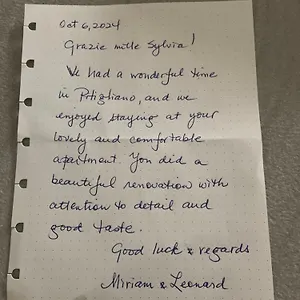 Oct 6, 2024
Grazie mille Sylvia!
We had a wonderful time
in Pitigliano, and we
enjoyed staying at your
lovely and comfortable
apartment. You did a
beautiful renovation with
attention to detail and
good taste.
Good luck & regards
Miriam & Leonard